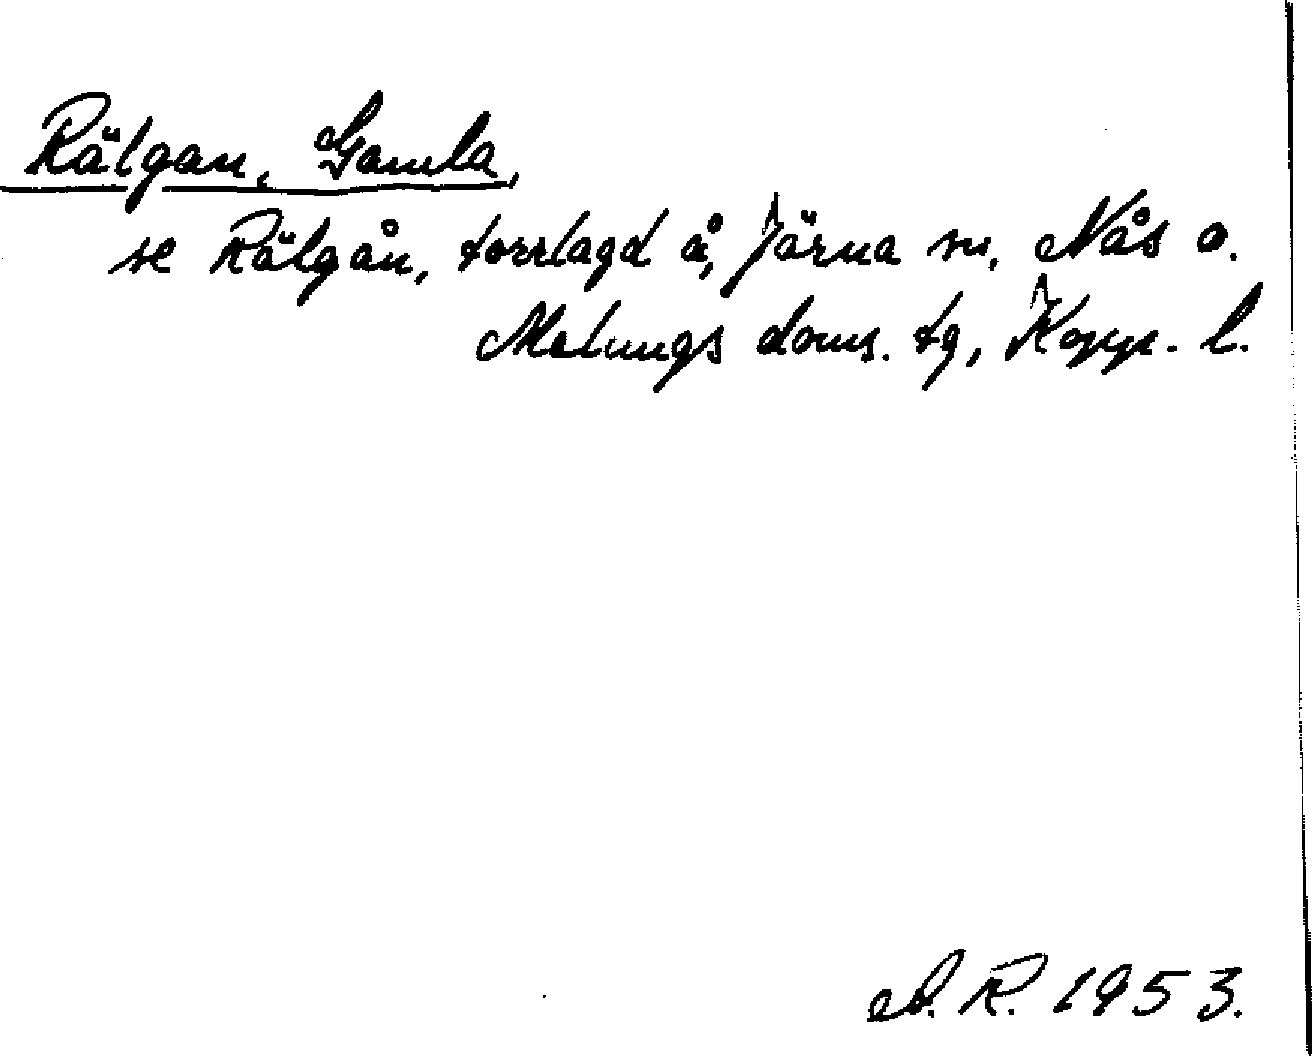 Rälgan, Gamla,
se Rälgån, torrlagd å, Järna sn, Nås o.
Malungs doms. tg, Kopp. l.
A. R. 1953.